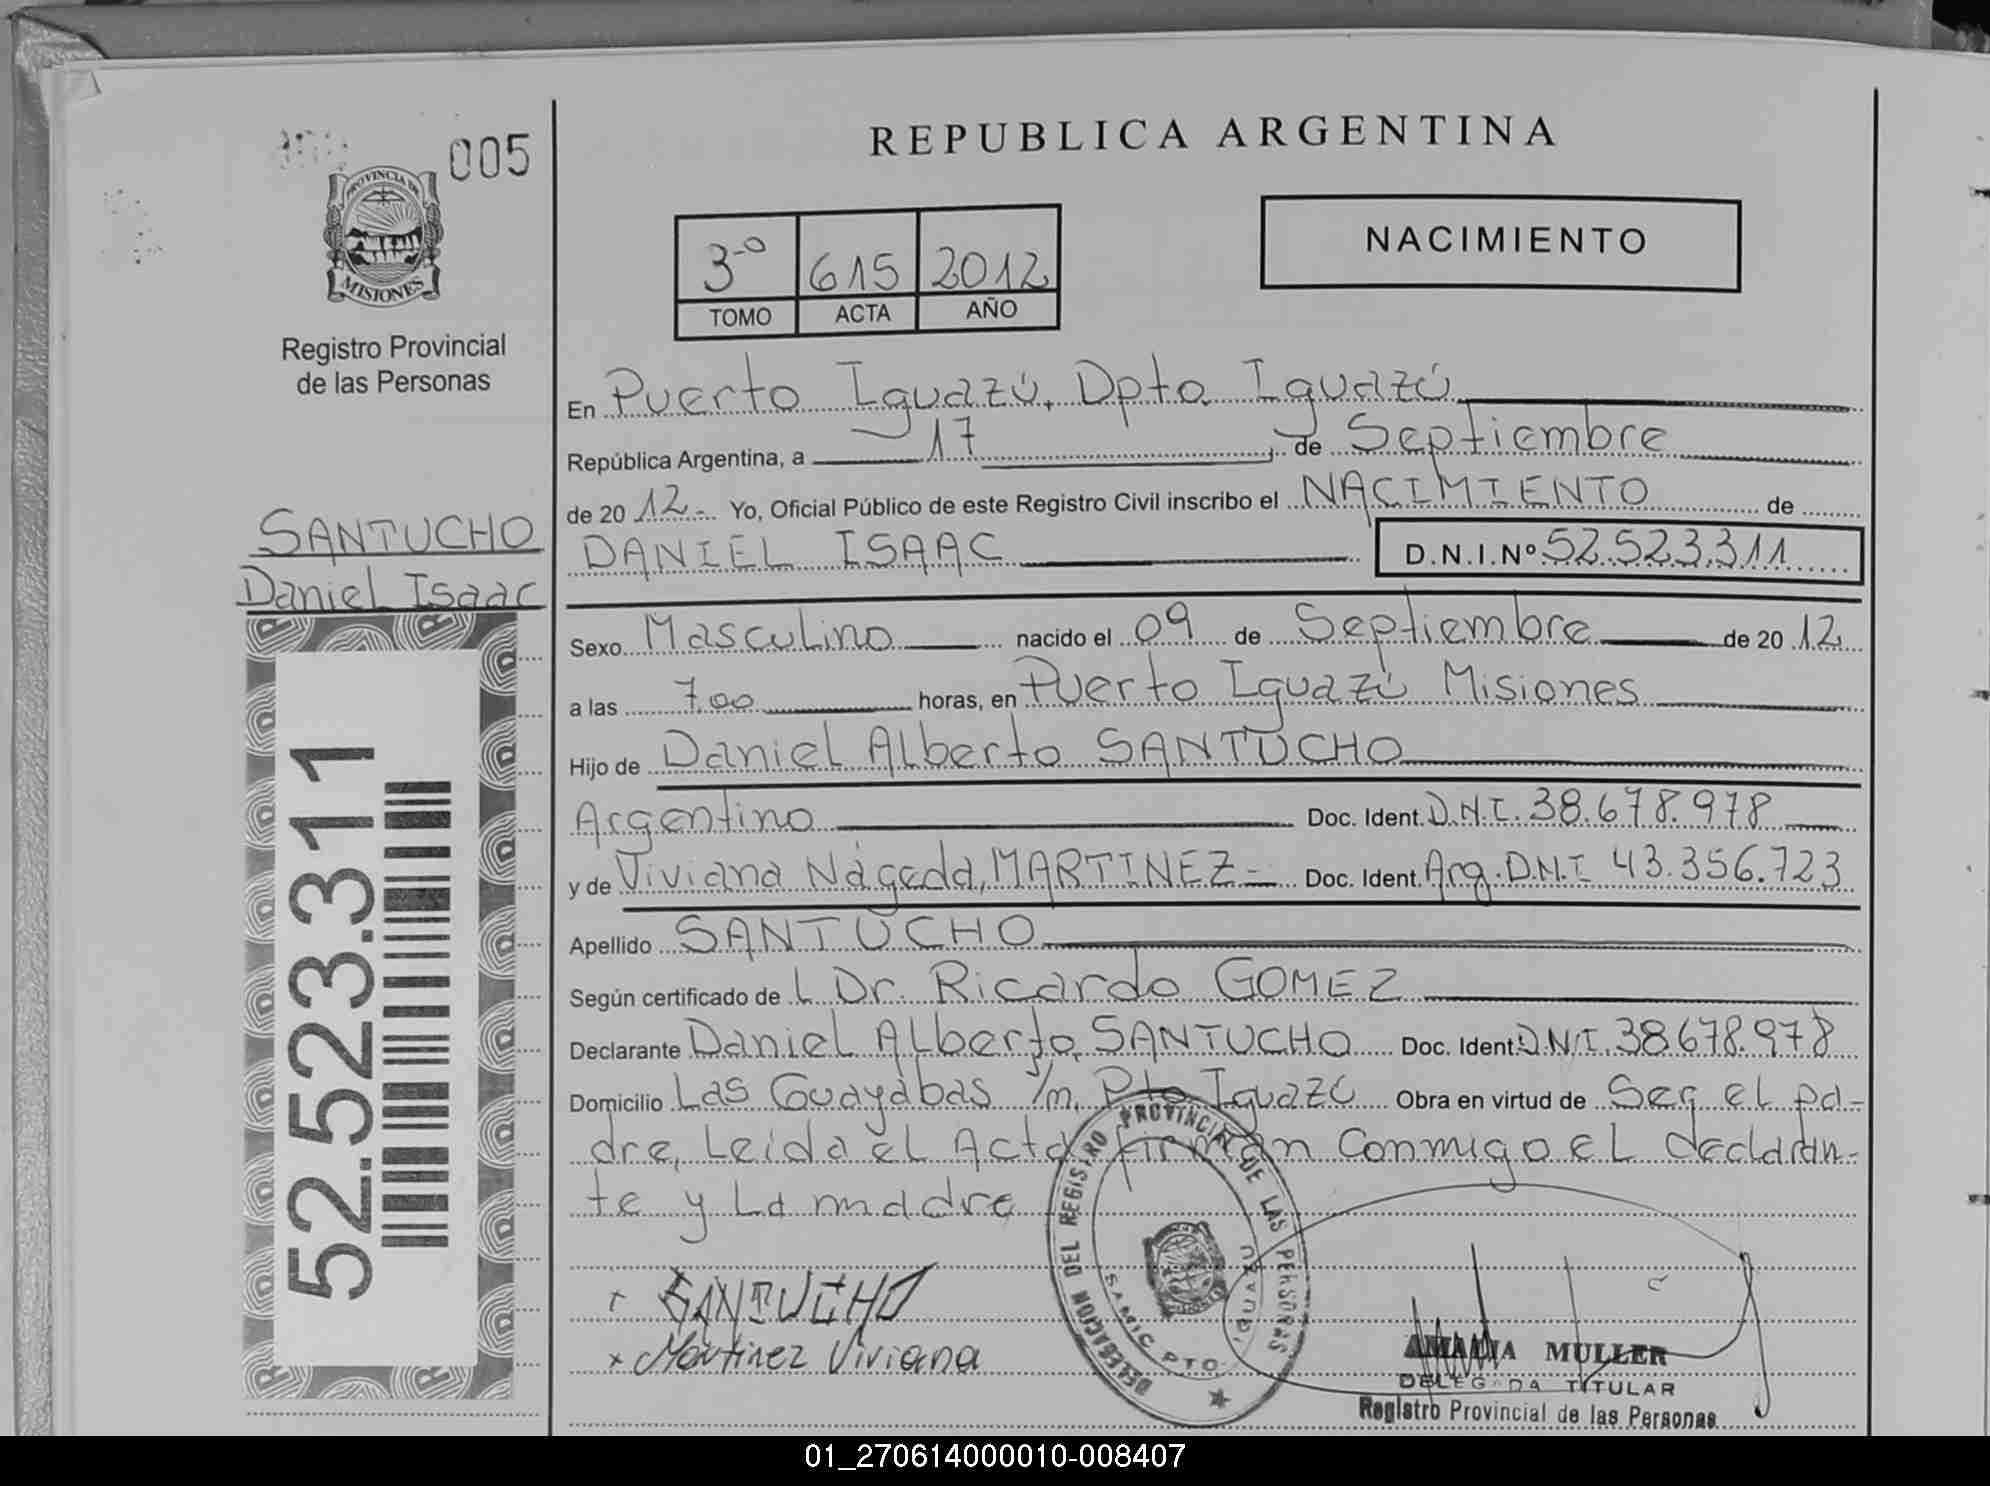 REPUBLICA ARGENTINA
005
PROVINCIA DE
MISIONES
Registro Provincial
de las Personas
3º 615 2012
TOMO ACTA AÑO
NACIMIENTO
En Puerto Iguazú, Dpto. Iguazú
República Argentina, a 17 de Septiembre
de 2012.- Yo, Oficial Público de este Registro Civil inscribo el NACIMIENTO de
DANIEL ISAAC D.N.I.Nº 52.523.311
SANTUCHO
Daniel Isaac
52.523.311
Sexo Masculino nacido el 09 de Septiembre de 2012
a las 7,00 horas, en Puerto Iguazú Misiones
Hijo de Daniel Alberto SANTUCHO
Argentino Doc. Ident. D.N.I. 38.678.978
y de Viviana Nágeda, MARTINEZ- Doc. Ident. Arg. D.N.I 43.356.723
Apellido SANTUCHO
Según certificado de L Dr. Ricardo GOMEZ
Declarante Daniel Alberto, SANTUCHO Doc. Ident D.N.I. 38.678.978
Domicilio Las Guayabas s/n, Pto Iguazú Obra en virtud de Ser el pa-
dre, Leida el Acta firman conmigo el declaran-
te y La madre
SANTUCHO
x Martinez Viviana
DELEGACION DEL REGISTRO PROVINCIAL DE LAS PERSONAS
SAMIC PTO. IGUAZU
AMALIA MULLER
DELEGADA TITULAR
Registro Provincial de las Personas
01_270614000010-008407